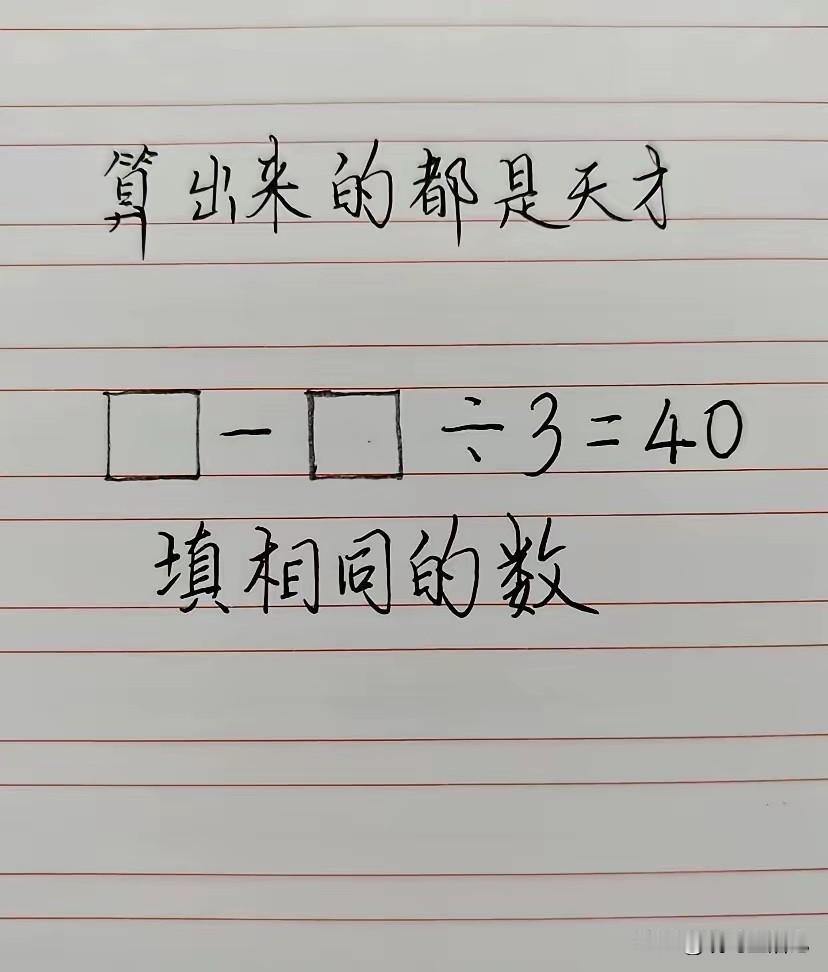 算出来的都是天才
□-□÷3=40
填相同的数